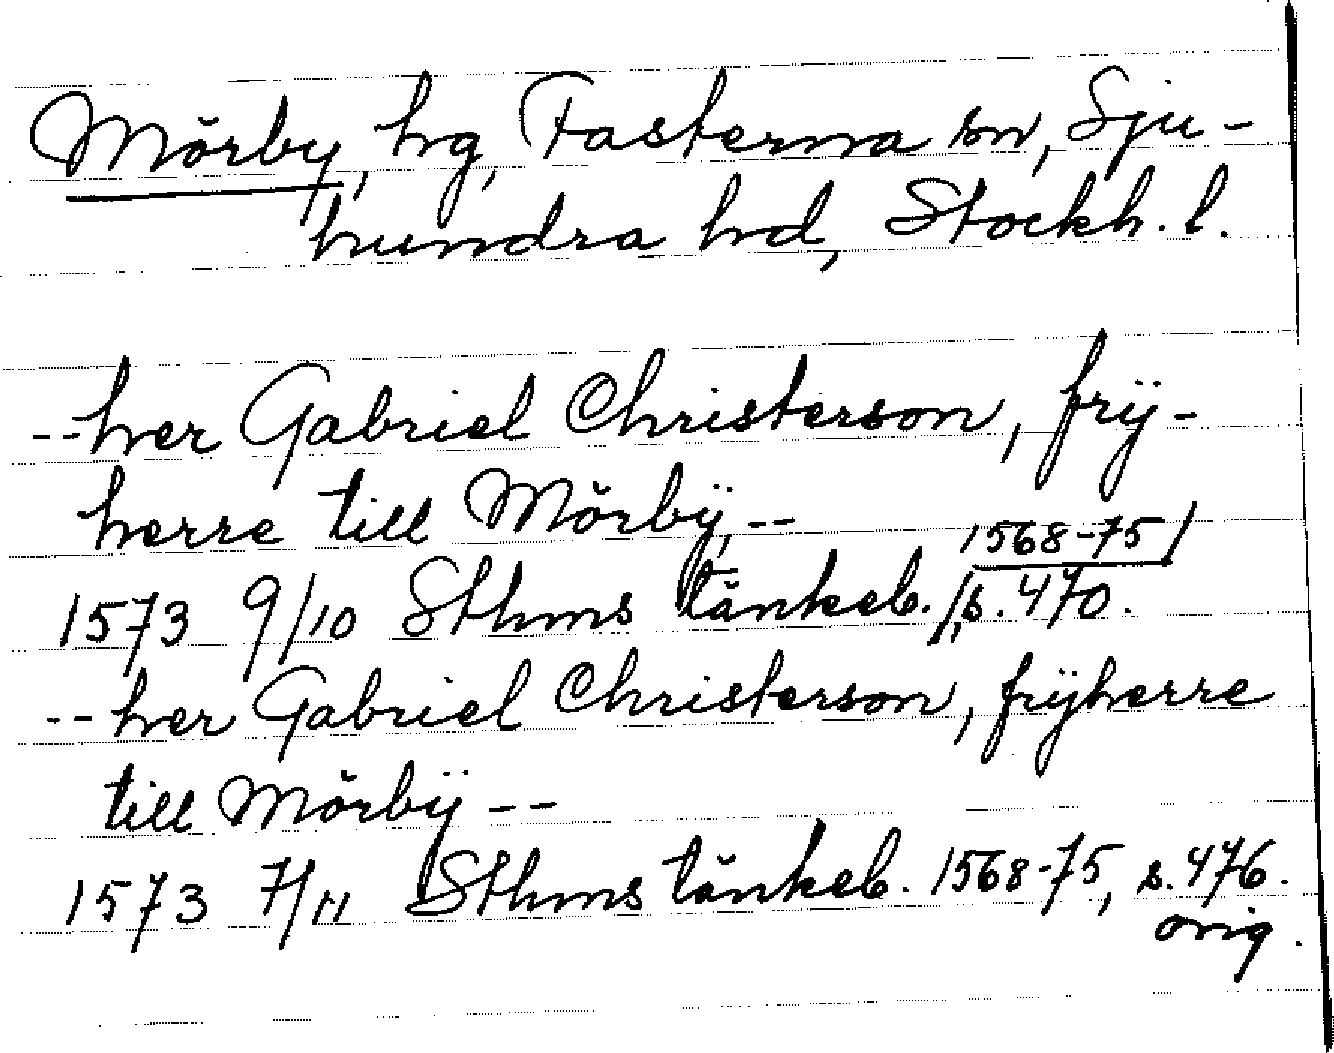 Mörby, hg, Fasterna sn, Sju-
hundra hd, Stockh. l.
--her Gabriel Christerson, frÿ-
herre till Mörbÿ, --
1573 9/10 Sthms tänkeb. /1568-75/, s. 470.
--her Gabriel Christerson, frÿherre
till Mörbÿ --
1573 7/11 Sthms tänkeb. 1568-75, s. 476.
orig.